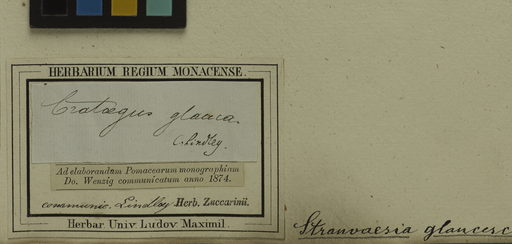 HERBARIUM REGIUM MONACENSE.
Crataegus glauca.
C. Lindley.
Ad elaborandam Pomacearum monographiam
Do. Wenzig communicatum anno 1874.
communic. Lindley Herb. Zuccarinii.
Herbar. Univ. Ludov. Maximil.
Stranvaesia glaucesc